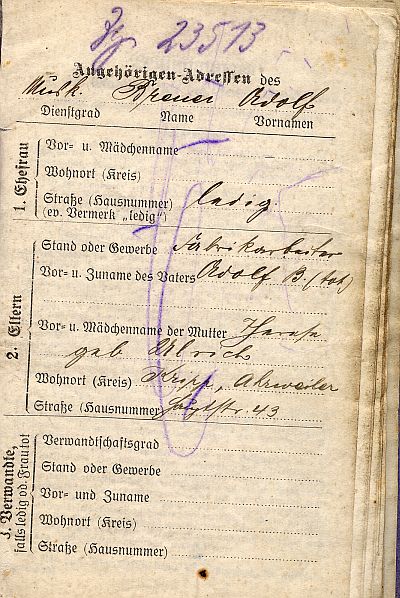 23513
Angehörigen-Adressen des
Musk. Breuer Adolf
Dienstgrad Name Vornamen
1. Ehefrau
Vor- u. Mädchenname
Wohnort (Kreis)
Straße (Hausnummer) ledig.
(ev. Vermerk „ledig")
2. Eltern
Stand oder Gewerbe Fabrikarbeiter
Vor- u. Zuname des Vaters Adolf B. (tot)
Vor- u. Mädchenname der Mutter Therese
geb Ulrich
Wohnort (Kreis) Kripp, Ahrweiler
Straße (Hausnummer) 43
3. Verwandte,
falls ledig od. Frau tot
Verwandtschaftsgrad
Stand oder Gewerbe
Vor- und Zuname
Wohnort (Kreis)
Straße (Hausnummer)